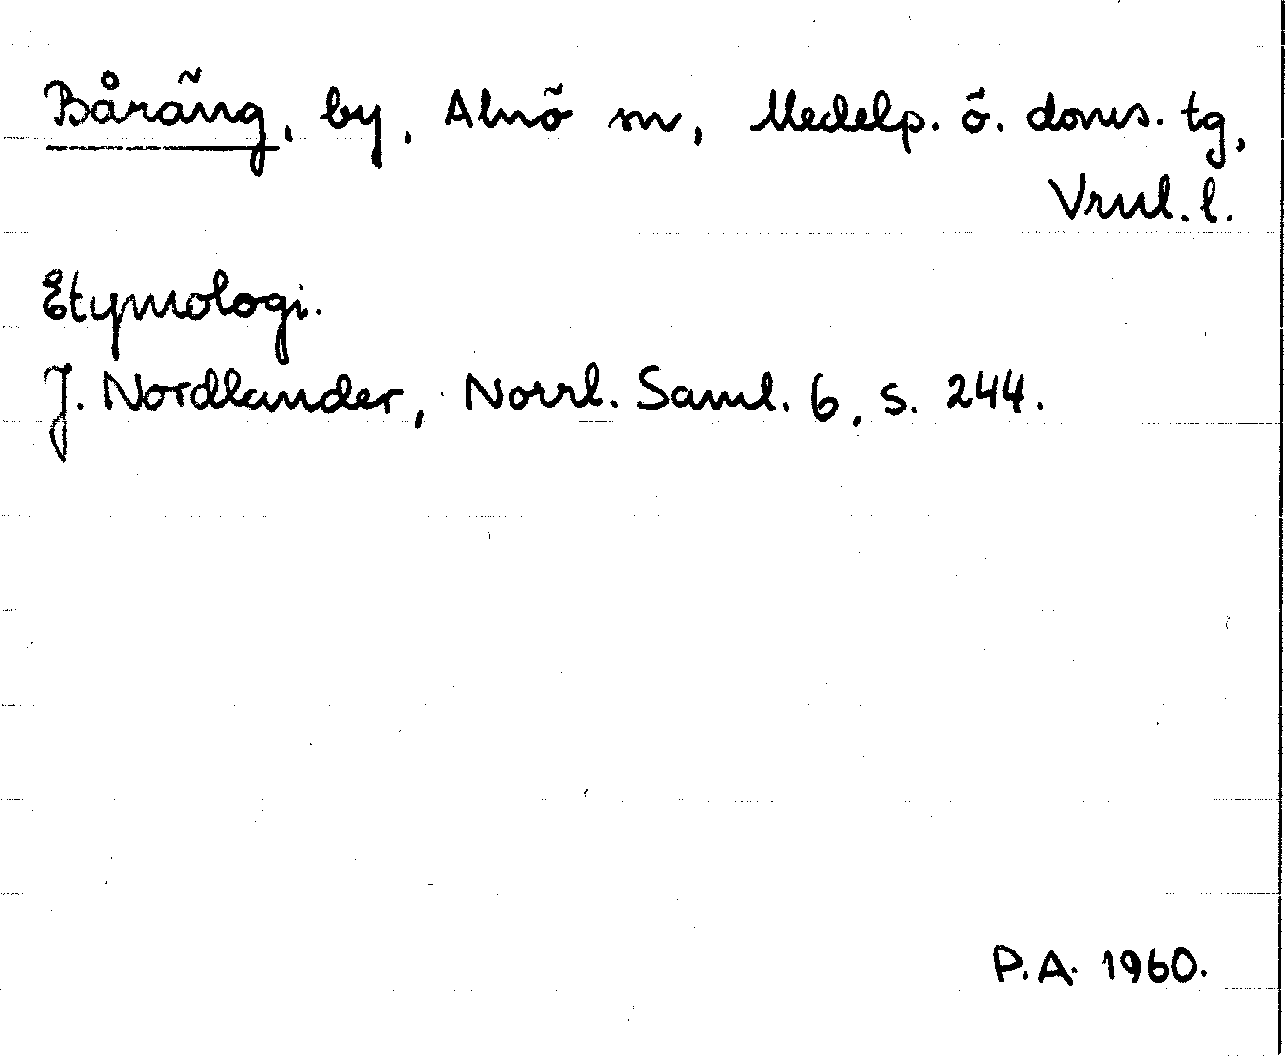 Båräng, by, Alnö sn, Medelp. ö. doms. tg,
Vrnl. l.
Etymologi.
J. Nordlander, Norrl. Saml. 6, s. 244.
P.A. 1960.